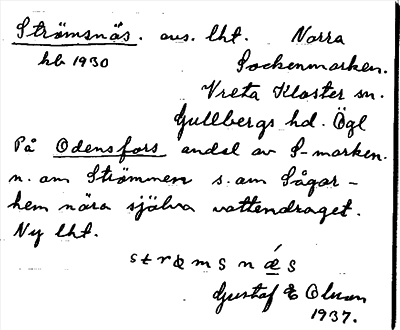 Strömsnäs. avs. lht. Norra
hb 1930 Sockenmarken.
Vreta Kloster sn.
Gullbergs hd. Ögl
På Odensfors andel av S-marken.
n. om Strömmen s. om Sågar-
hem nära själva vattendraget.
Ny lht.
strømsnǽs
Gustaf E Olsson
1937.